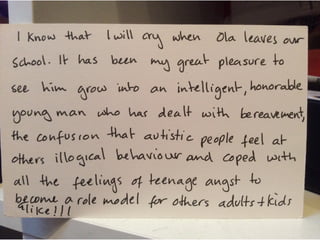 I know that I will cry when Ola leaves our
school. It has been my great pleasure to
see him grow into an intelligent, honorable
young man who has dealt with bereavement,
the confusion that autistic people feel at
others illogical behaviour and coped with
all the feelings of teenage angst to
become a role model for others adults + kids
alike!!!